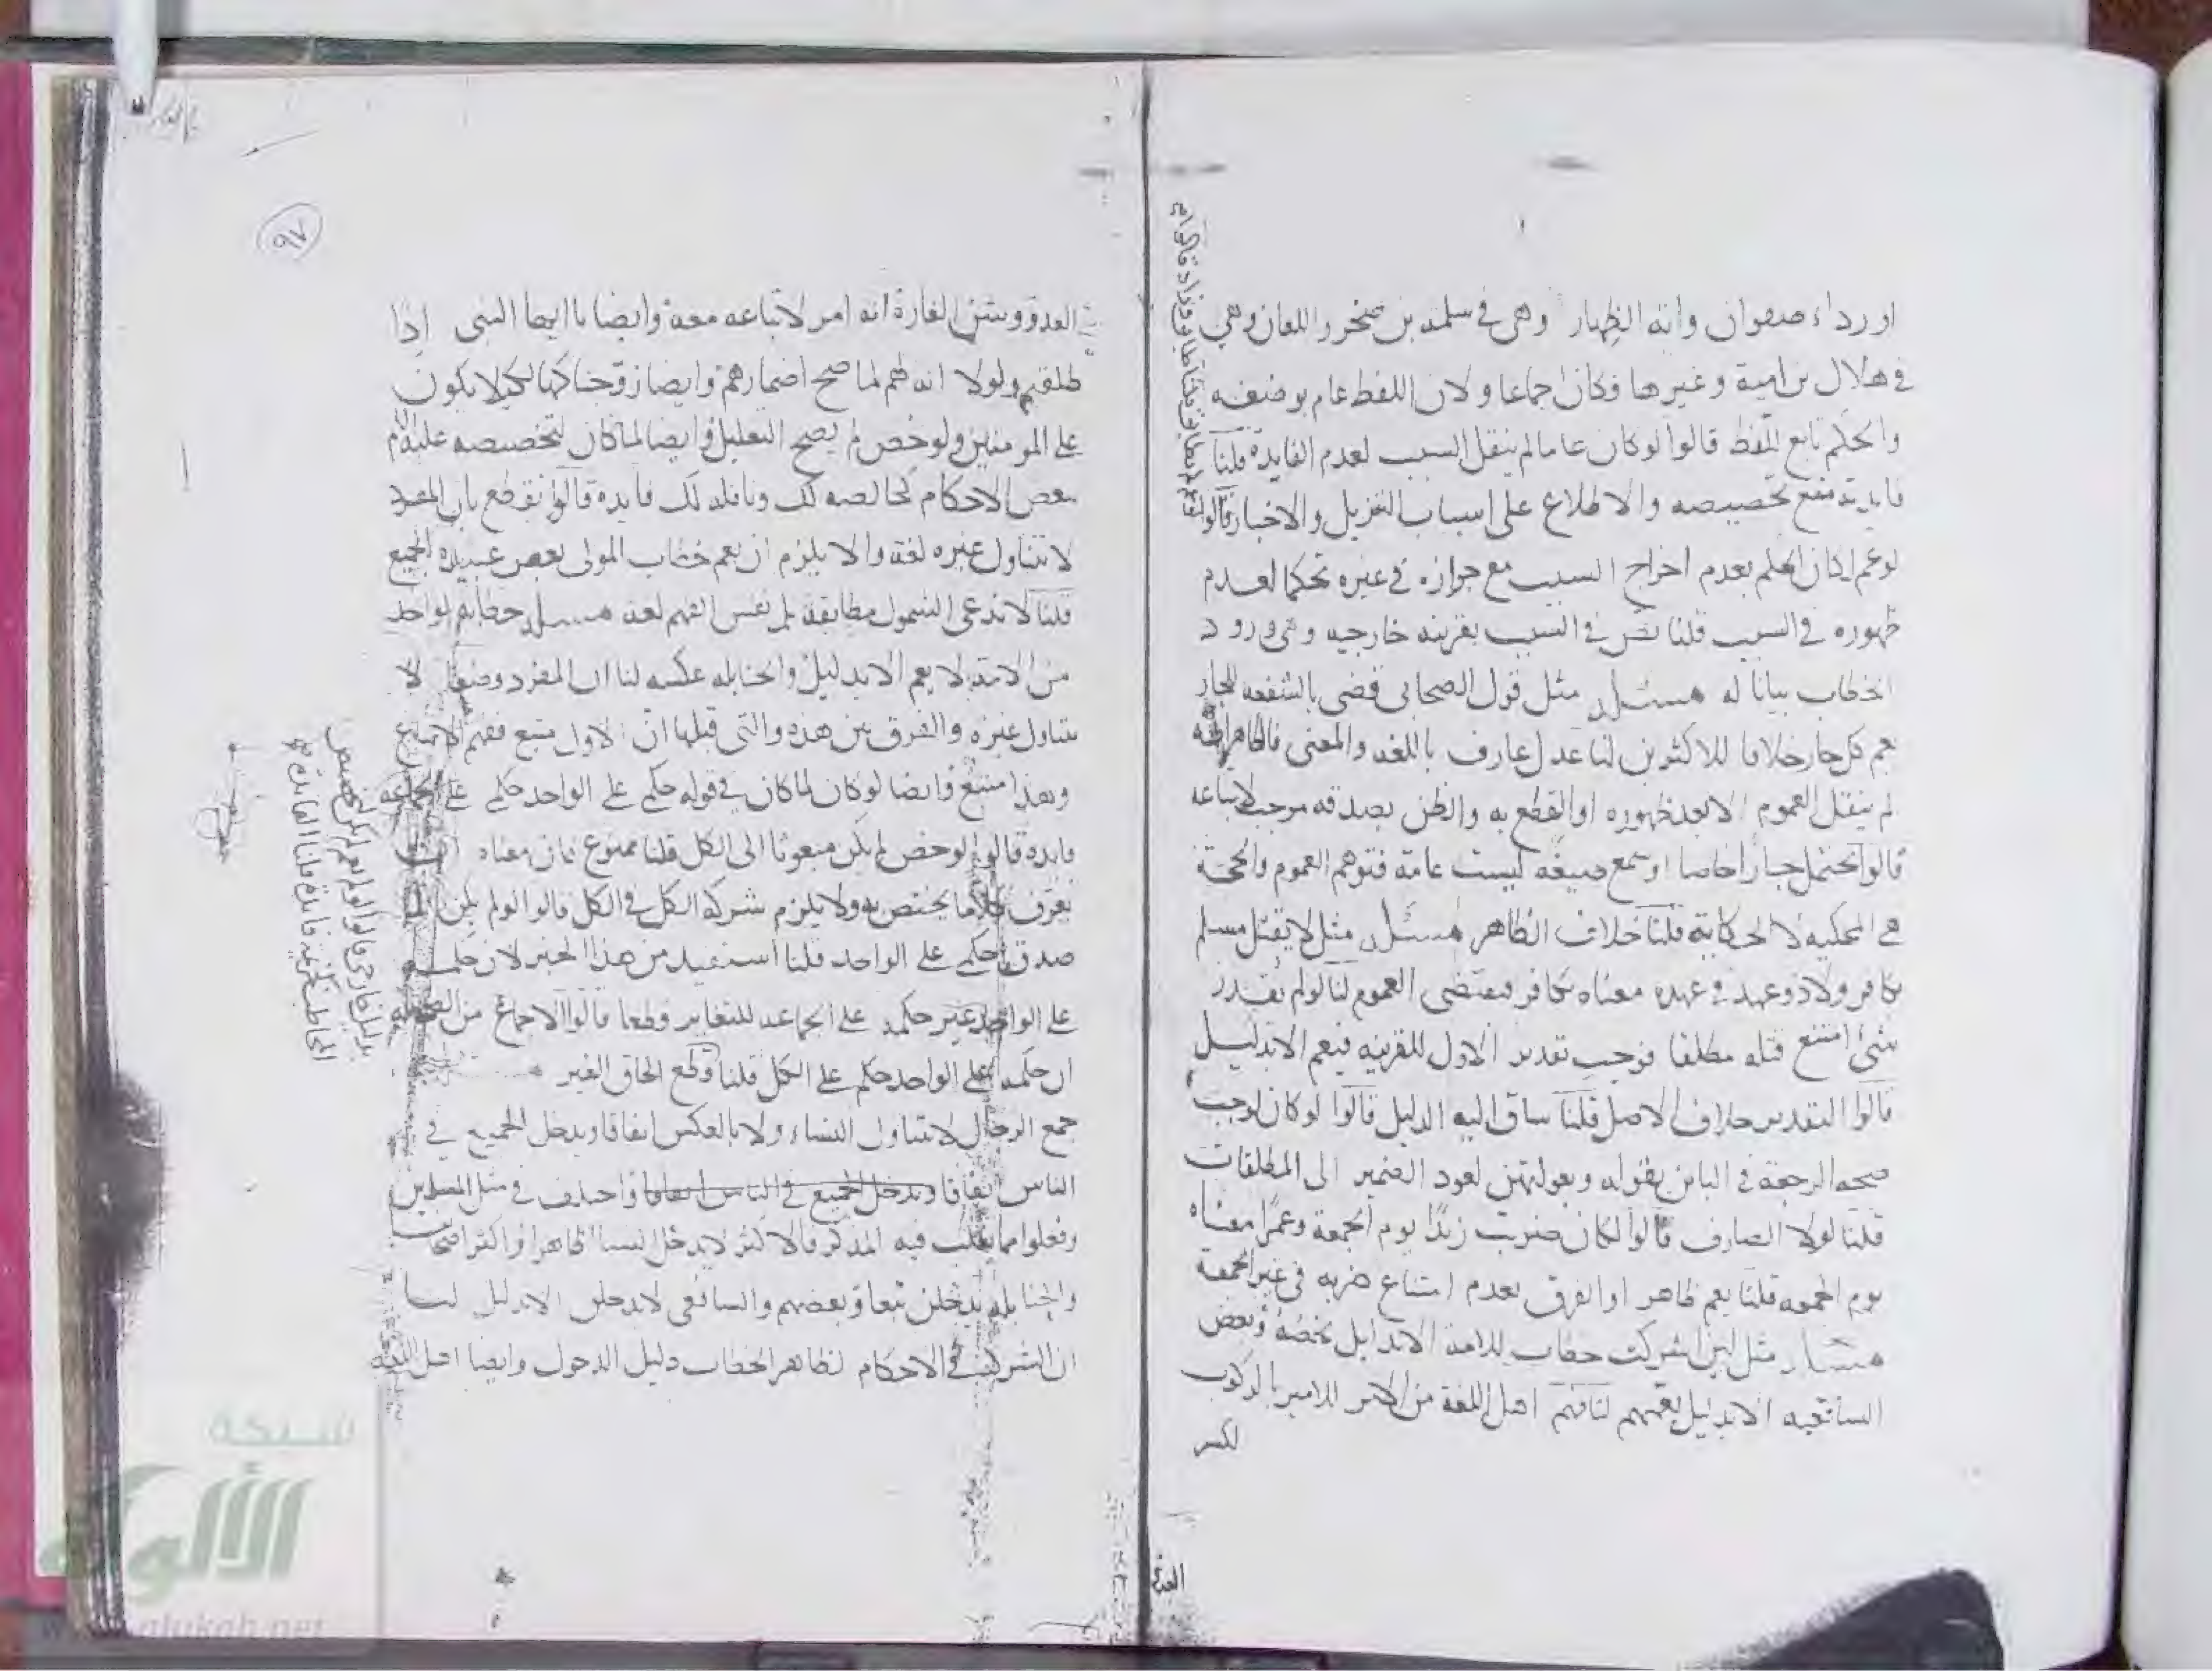 او رداء صفوان وآية الظهار وهي في سلمة بن صخر واللعان وهي
في هلال بن امية وغيرها فكان اجماعا ولان اللفظ عام بوضعه
والحكم تابع اللفظ قالوا لو كان عاما لم ينقل السبب لعدم الفايدة قلنا
فايدته منع تخصيصه والاطلاع على اسباب التنزيل والاخبار قالوا
لو عم لكان الحكم بعدم اخراج السبب مع جوازه في غيره تحكما لعدم
ظهوره في السبب قلنا نص في السبب بقرينه خارجيه وهي ورود
الخطاب بيانا له مسئلة مثل قول الصحابي قضى بالشفعه للجار
يعم كل جار خلافا للاكثرين لنا عدل عارف باللغه والمعنى فالظاهر انه
لم ينقل العموم الا بعد ظهوره او القطع به والظن بصدقه موجب لاتباعه
قالوا يحتمل جبارا خاصا او سمع صيغه ليست عامة فتوهم العموم والحجة
هي المحكيه لا الحكاية قلنا خلاف الظاهر مسئلة مثل لا يقتل مسلم
بكافر ولا ذو عهد في عهده معناه بكافر فيقتضي العموم لنا لو لم يقدر
شئ امتنع قتله مطلقا فوجب تقدير الاول للقرينه فيعم الا بدليل
قالوا التقدير خلاف الاصل قلنا ساق اليه الدليل قالوا لو كان لوجب
صحه الرجعة في الباين بقوله وبعولتهن لعود الضمير الى المطلقات
قلنا لولا الصارف قالوا لكان ضربت زيدا يوم الجمعة وعمرا معناه
يوم الجمعه قلنا يعم ظاهر او الفرق بعدم امتناع ضربه في غير الجمعة
مسئلة مثل لئن اشركت خطاب للامة الا بدليل يخصه وبعض
الشافعيه الا بدليل يعمهم لنا فهم اهل اللغة من الامر للامير بالركوب
لكسر
العدو
٩٧
العدو وشن الغارة انه امر لاتباعه معه وايضا يا ايها النبي اذا
طلقتم ولولا انه لهم لما صح اضمارهم وايضا زوجناكها لكيلا يكون
على المومنين ولو خص لم يصح التعليل وايضا لما كان لتخصيصه عليه
بعض الاحكام كخالصه لك ونافلة لك فايده قالوا نقطع بان المفرد
لا يتناول غيره لغة والا يلزم ان يعم خطاب المولى بعض عبيده الجميع
قلنا لا ندعي الشمول مطابقة بل نفس الفهم لغة مسئلة خطابه لواحد
من الامة لا يعم الا بدليل والحنابله عكسه لنا ان المفرد وضعا لا
يتناول غيره والفرق بين هذه والتي قبلها ان الاول متبع ففهم الاتباع
وهذا متبع وايضا لو كان لما كان في قوله حكمي على الواحد حكمي على الجماعه
فايدة قالوا لو خص لم يكن مبعوثا الى الكل قلنا ممنوع فان معناه
يعرف كلا ما يختص به ولا يلزم شركه الكل في الكل قالوا لو لم يكن
صدق حكمي على الواحد قلنا استفيد من هذا الخبر لان حكمه
على الواحد غير حكمه على الجماعه للتغاير قطعا قالوا الاجماع من الصحابة
ان حكمه على الواحد حكم على الكل قلنا وقع الحاق الغير
جمع الرجال لا يتناول النساء ولا بالعكس اتفاقا ويدخل الجميع في
الناس اتفاقا ويدخل الجميع في الناس اتفاقا واختلف في مثل المسلمين
وفعلوا مما يغلب فيه المذكر فالاكثر لا يدخل النسا ظاهرا واكثر اصحاب
والحنابله يدخلن تبعا وبعضهم والشافعي لا يدخلن الا بدليل لنا
ان الشركة في الاحكام لظاهر الخطاب دليل الدخول وايضا اهل اللغه
شبكة
الألوكة
alukah.net